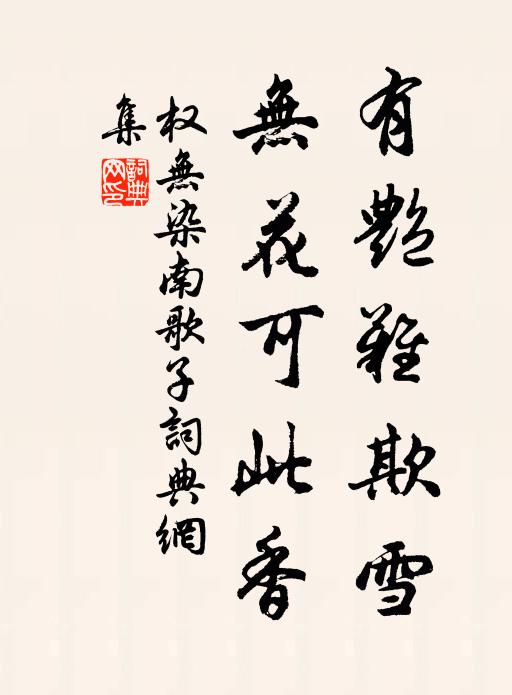 有艷難欺雪
無花可此香
权無染南歌子詞典網
集
詞典網印